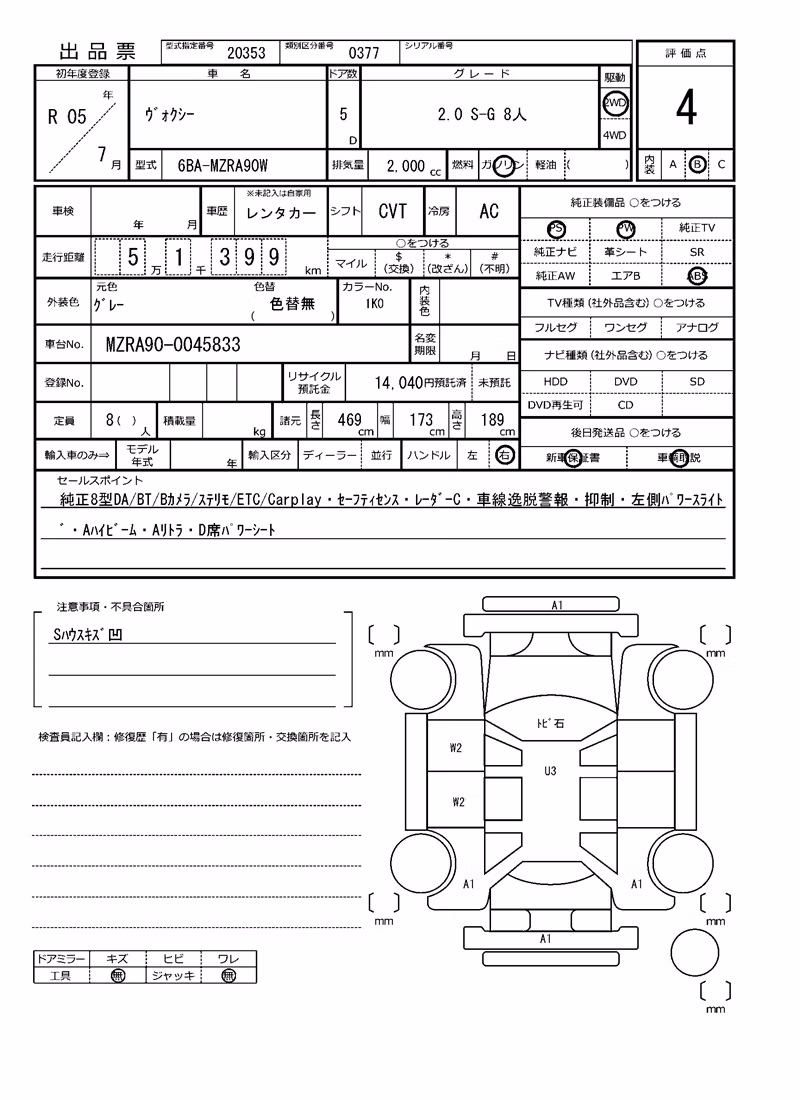 出品票
型式指定番号 20353 類別区分番号 0377 シリアル番号
評価点
初年度登録 車名 ドア数 グレード 駆動
R 05 年 7 月
ヴォクシー
5 D
2.0 S-G 8人
2WD
4WD
4
型式 6BA-MZRA90W 排気量 2,000 cc 燃料 ガソリン 軽油 ( )
内装 A B C
車検 年 月 車歴 ※未記入は自家用 レンタカー シフト CVT 冷房 AC
純正装備品 ○をつける
PS PW 純正TV
純正ナビ 革シート SR
純正AW エアB ABS
走行距離 5 万 1 千 399 km
○をつける
マイル $(交換) *(改ざん) #(不明)
外装色 元色 グレー 色替 ( 色替無 ) カラーNo. 1K0 内装色
TV種類(社外品含む)○をつける
フルセグ ワンセグ アナログ
車台No. MZRA90-0045833 名変期限 月 日
ナビ種類(社外品含む)○をつける
HDD DVD SD
DVD再生可 CD
登録No. リサイクル預託金 14,040円預託済 未預託
定員 8( )人 積載量 kg 諸元 長さ 469cm 幅 173cm 高さ 189cm
後日発送品 ○をつける
新車保証書 車輌取説
輸入車のみ⇒ モデル年式 年 輸入区分 ディーラー 並行 ハンドル 左 右
セールスポイント
純正8型DA/BT/Bカメラ/ステリモ/ETC/Carplay・セーフティセンス・レーダーC・車線逸脱警報・抑制・左側パワースライト
゛・Aハイビーム・Aリトラ・D席パワーシート
注意事項・不具合箇所
Sハウスキズ凹
検査員記入欄：修復歴「有」の場合は修復箇所・交換箇所を記入
A1
mm
mm
トビ石
W2
U3
W2
A1
A1
mm
mm
A1
mm
ドアミラー キズ ヒビ ワレ
工具 無 ジャッキ 無